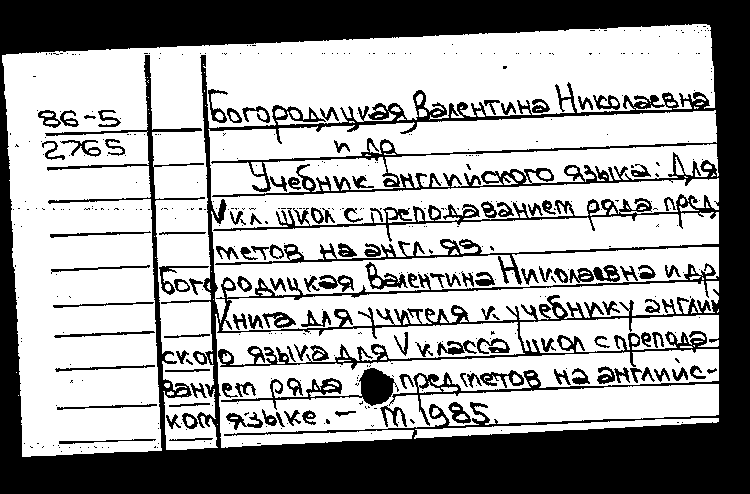 86-5
2765
Богородицкая, Валентина Николаевна
и др
Учебник английского языка: Для
V кл. школ с преподаванием ряда пред-
метов на англ. яз.
Богородицкая, Валентина Николаевна и др.
Книга для учителя к учебнику англий
ского языка для V класса школ с препода-
ванием ряда предметов на английс-
ком языке. - М. 1985.